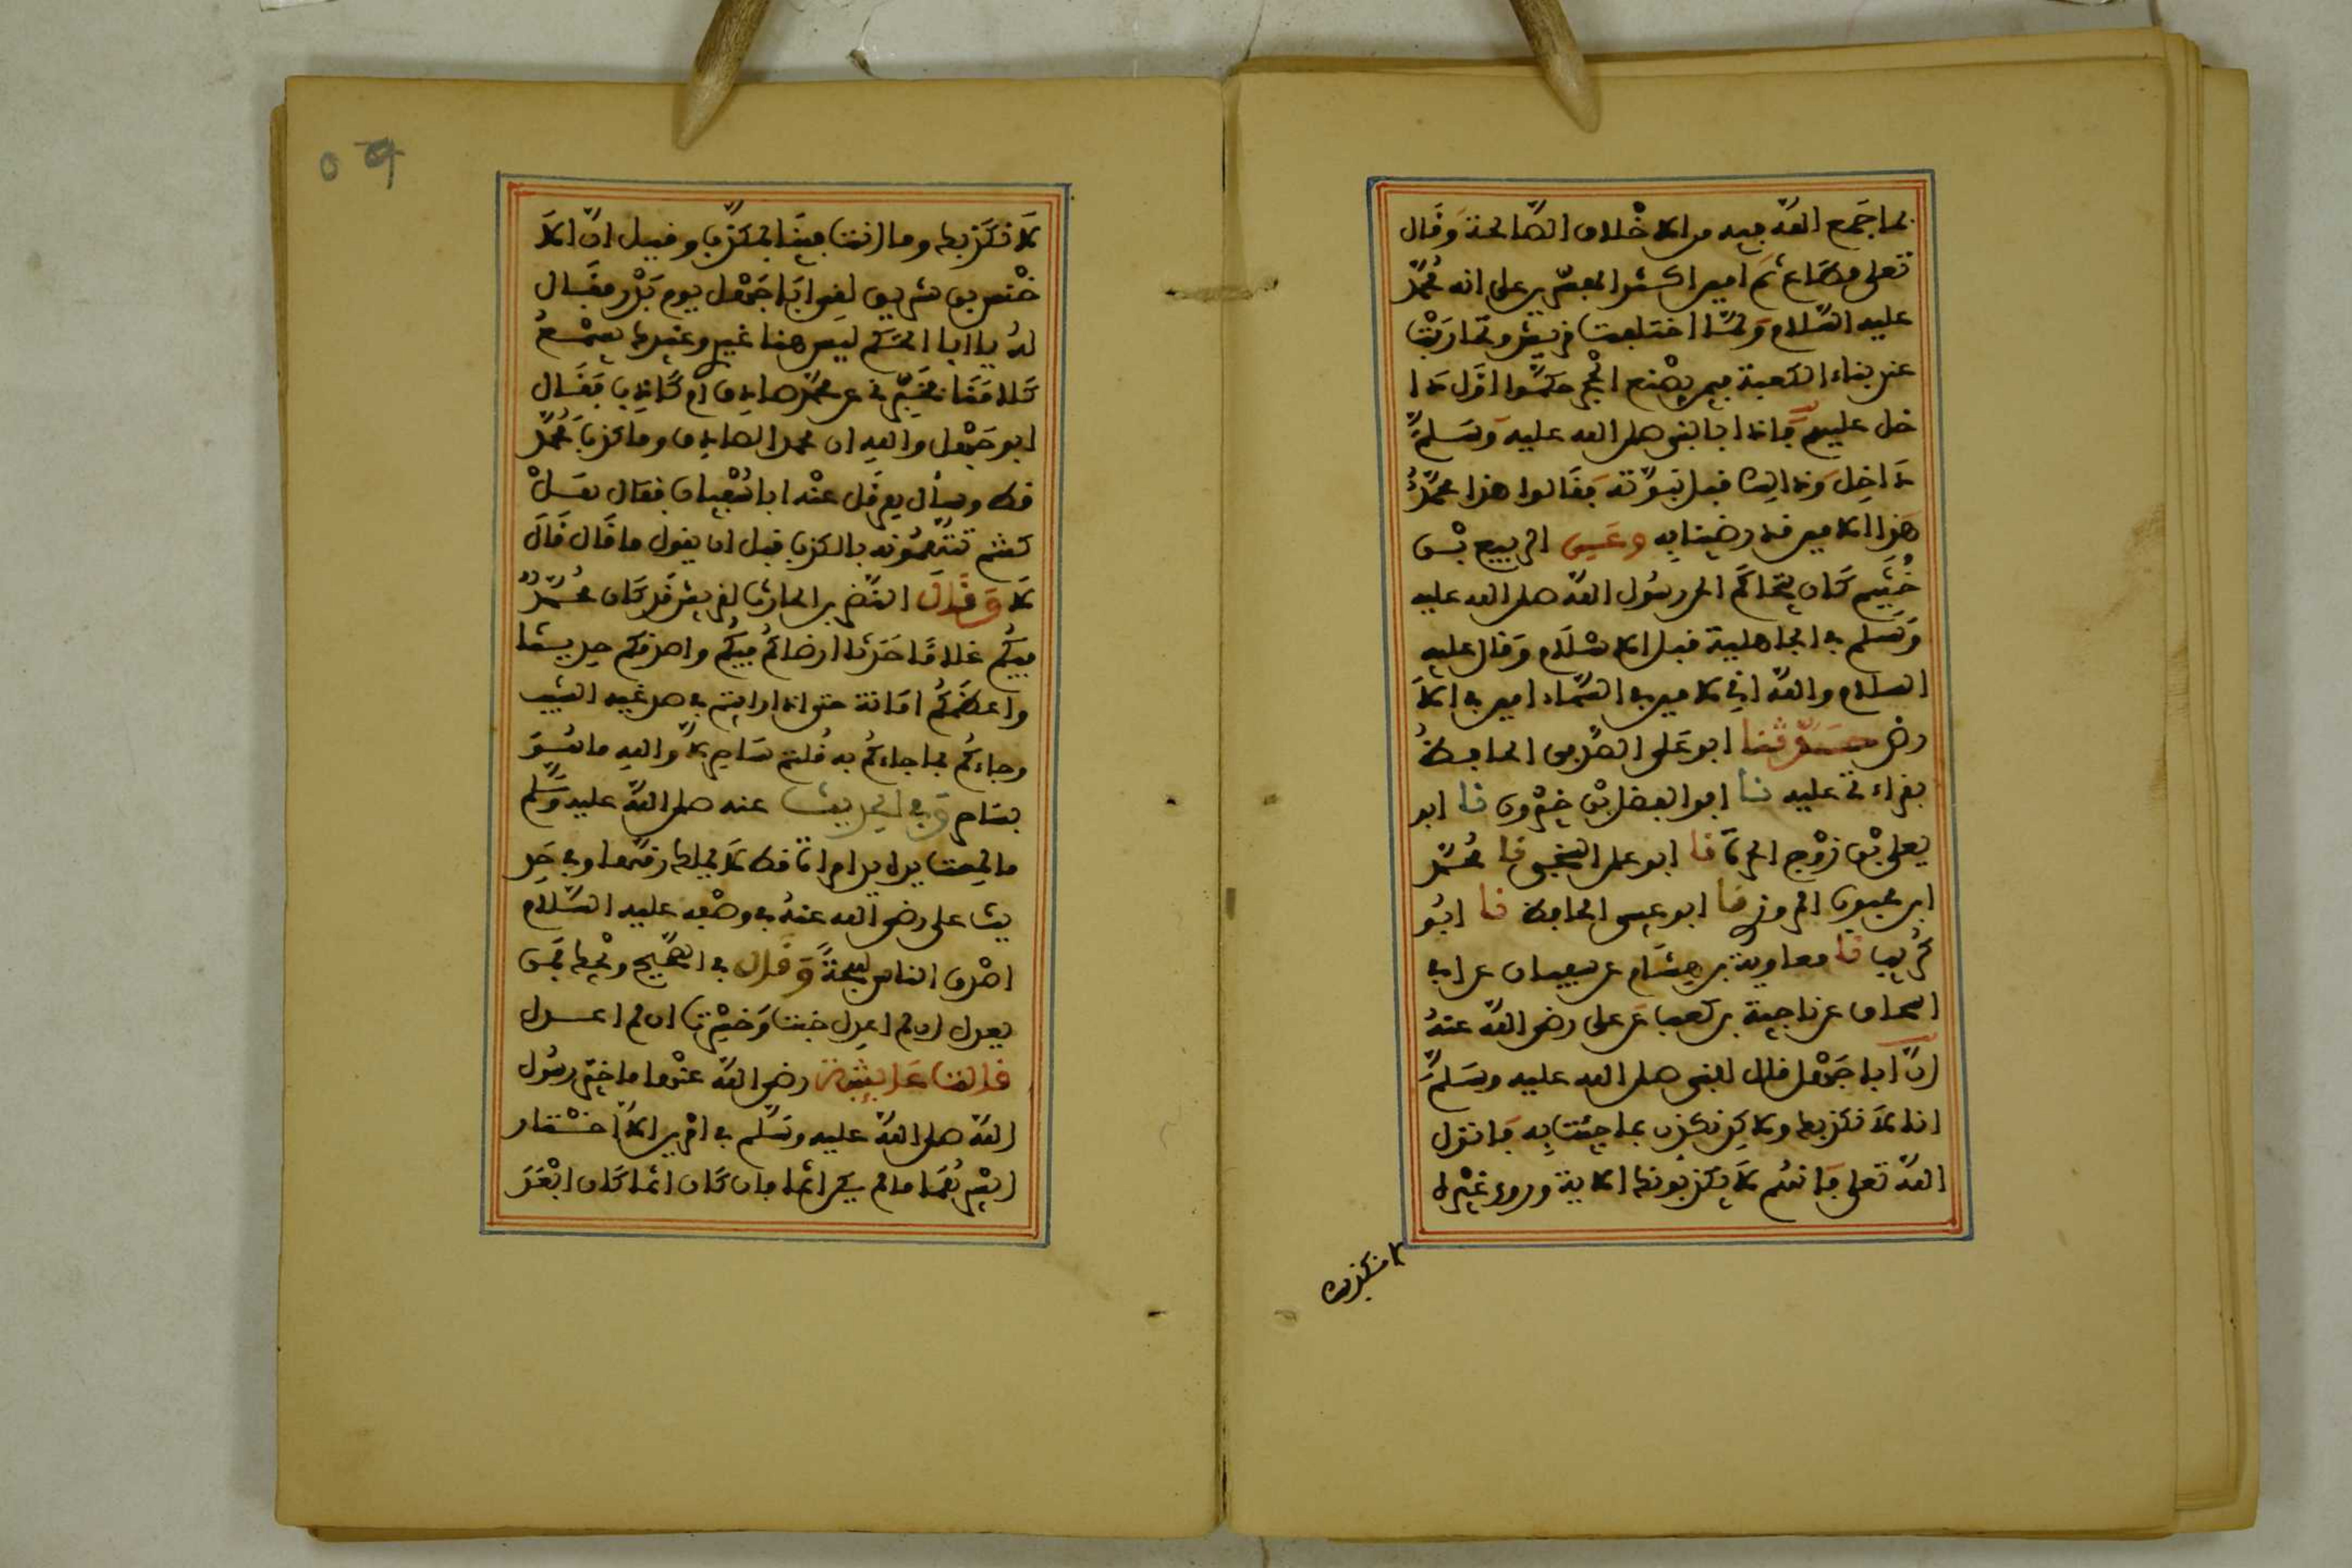 بما جمع الله فيه من الاخلاق الصالحة وقال
تعلى مطاع ثم امين اكثر المفسرين على انه محمد
عليه السلام ولما اختلفت قريش وتحاربت
عند بناء الكعبة فيمن يضع الحجر حكموا اول دا
خل عليهم فاذا بالنبي صلى الله عليه وسلم
داخل وذالك قبل نبوته فقالوا هذا محمد
هذا الامين قد رضينا به وعن الربيع بن
خثيم كان يتحاكم الى رسول الله صلى الله عليه
وسلم في الجاهلية قبل الاسلام وقال عليه
السلام والله اني لامين في السماء امين في الا
رض حدثنا ابو على الصدفي الحافظ
بقراءتي عليه نا ابو الفضل بن خيرون نا ابو
يعلى بن زوج الحرة نا ابو على السنجي نا محمد
ابن محبوب المروزي نا ابو عيسى الحافظ نا ابو
كريب نا معاوية بن هشام عن سفيان عن ابي
اسحاق عن ناجية بن كعب عن على رضى الله عنه
ان ابا جهل قال للنبي صلى الله عليه وسلم
انا لا نكذبك ولاكن نكذب بما جئت به فانزل
الله تعلى فانهم لا يكذبونك الاية وروى غيره
لا نكذبك
٥٩
لا نكذبك وما انت فينا بمكذب وقيل ان الا
خنس بن شريق لقى ابا جهل يوم بدر فقال
له يا ابا الحكم ليس هنا غيري وغيرك يسمع
كلامنا تخبرني عن محمد صادق ام كاذب فقال
ابو جهل والله ان محمدا لصادق وما كذب محمد
قط وسأل هرقل عنه ابا سفيان فقال هل
كنتم تتهمونه بالكذب قبل ان يقول ما قال قال
لا وقال النضر بن الحارث لقريش قد كان محمد
فيكم غلاما حدثا ارضاكم فيكم واصدقكم حديثا
واعظمكم امانة حتى اذا رايتم في صدغيه الشيب
وجاءكم بما جاءكم به قلتم ساحر لا والله ما هو
بساحر وفي الحديث عنه صلى الله عليه وسلم
ما لمست يده يد امراة قط لا يملك رقها وفي حد
يث على رضى الله عنه في وصفه عليه السلام
اصدق الناس لهجة وقال في الصحيح ويحك فمن
يعدل ان لم اعدل خبت وخسرت ان لم اعدل
قالت عايشة رضى الله عنها ما خير رسول
الله صلى الله عليه وسلم في امرين الا اختار
ايسرهما ما لم يكن اثما فان كان اثما كان ابعد